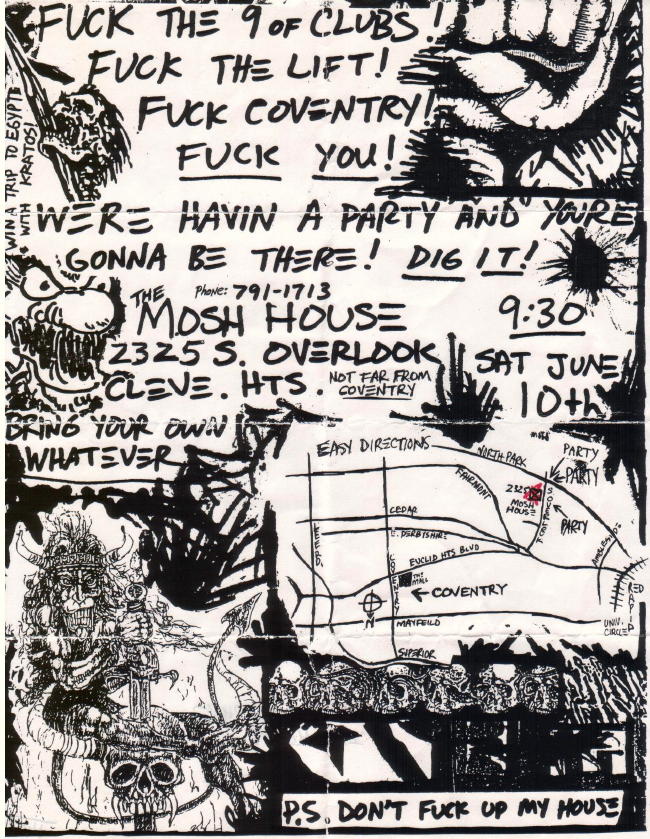 FUCK THE 9 OF CLUBS!
FUCK THE LIFT!
FUCK COVENTRY!
FUCK YOU!
WIN A TRIP TO EGYPT
WITH KRATOS!
WERE HAVIN A PARTY AND YOURE
GONNA BE THERE! DIG IT!
Phone: 791-1713
THE
MOSH HOUSE
2325 S. OVERLOOK
CLEVE. HTS.
NOT FAR FROM
COVENTRY
9:30
SAT JUNE
10th
BRING YOUR OWN
WHATEVER
EASY DIRECTIONS
NORTH PARK
PARTY
PARTY
FAIRMONT
2325
MOSH
HOUSE
PARTY
CEDAR
E. DERBYSHIRE
EUCLID HTS BLVD
COVENTRY
THE
MALL
COVENTRY
N
MAYFEILD
UNIV.
CIRCLE
RED
RAPID
SUPERIOR
P.S. DON'T FUCK UP MY HOUSE